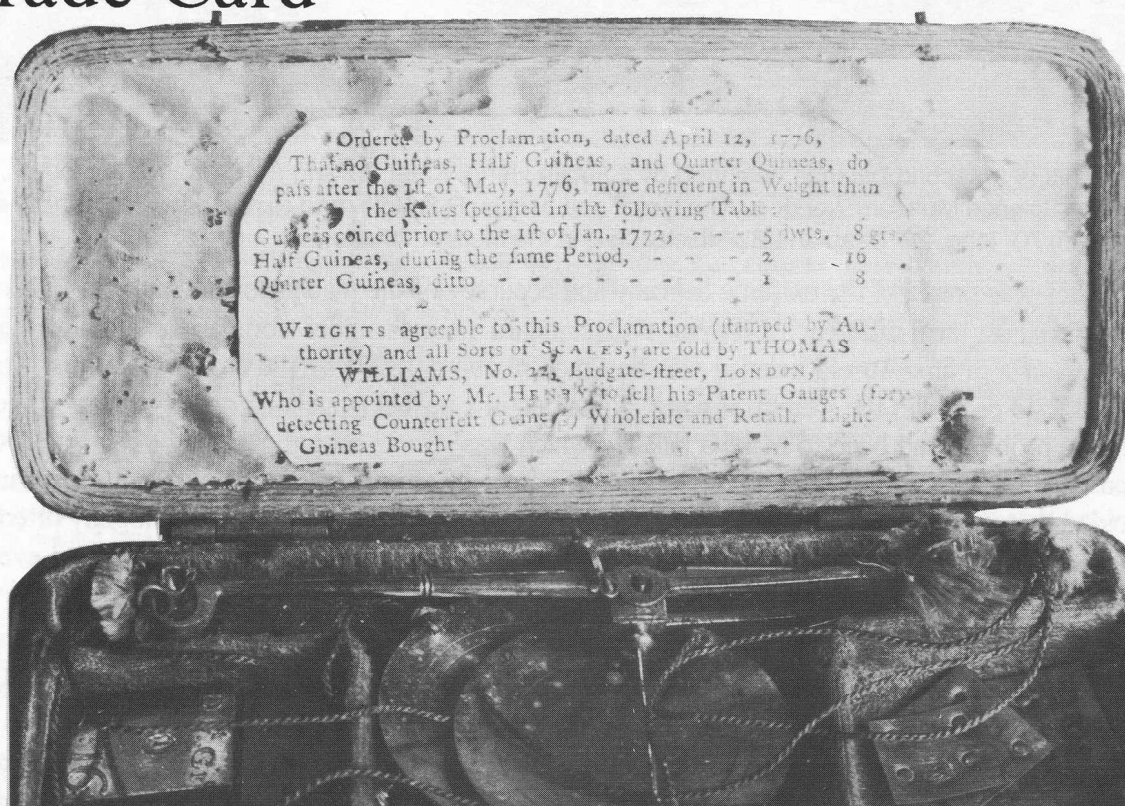 Trade Card
Ordered by Proclamation, dated April 12, 1776,
That no Guineas, Half Guineas, and Quarter Quineas, do
paſs after the 1ſt of May, 1776, more deficient in Weight than
the Rates ſpecified in the following Table.
Guineas coined prior to the 1ſt of Jan. 1772, - - - 5 dwts. 8 grs.
Half Guineas, during the ſame Period, - - - 2 16
Quarter Guineas, ditto - - - - - - - 1 8
WEIGHTS agreeable to this Proclamation (ſtamped by Au-
thority) and all Sorts of SCALES, are ſold by THOMAS
WILLIAMS, No. 22, Ludgate-ſtreet, LONDON,
Who is appointed by Mr. HENRY to ſell his Patent Gauges (for
detecting Counterfeit Guineas) Wholeſale and Retail. Light
Guineas Bought